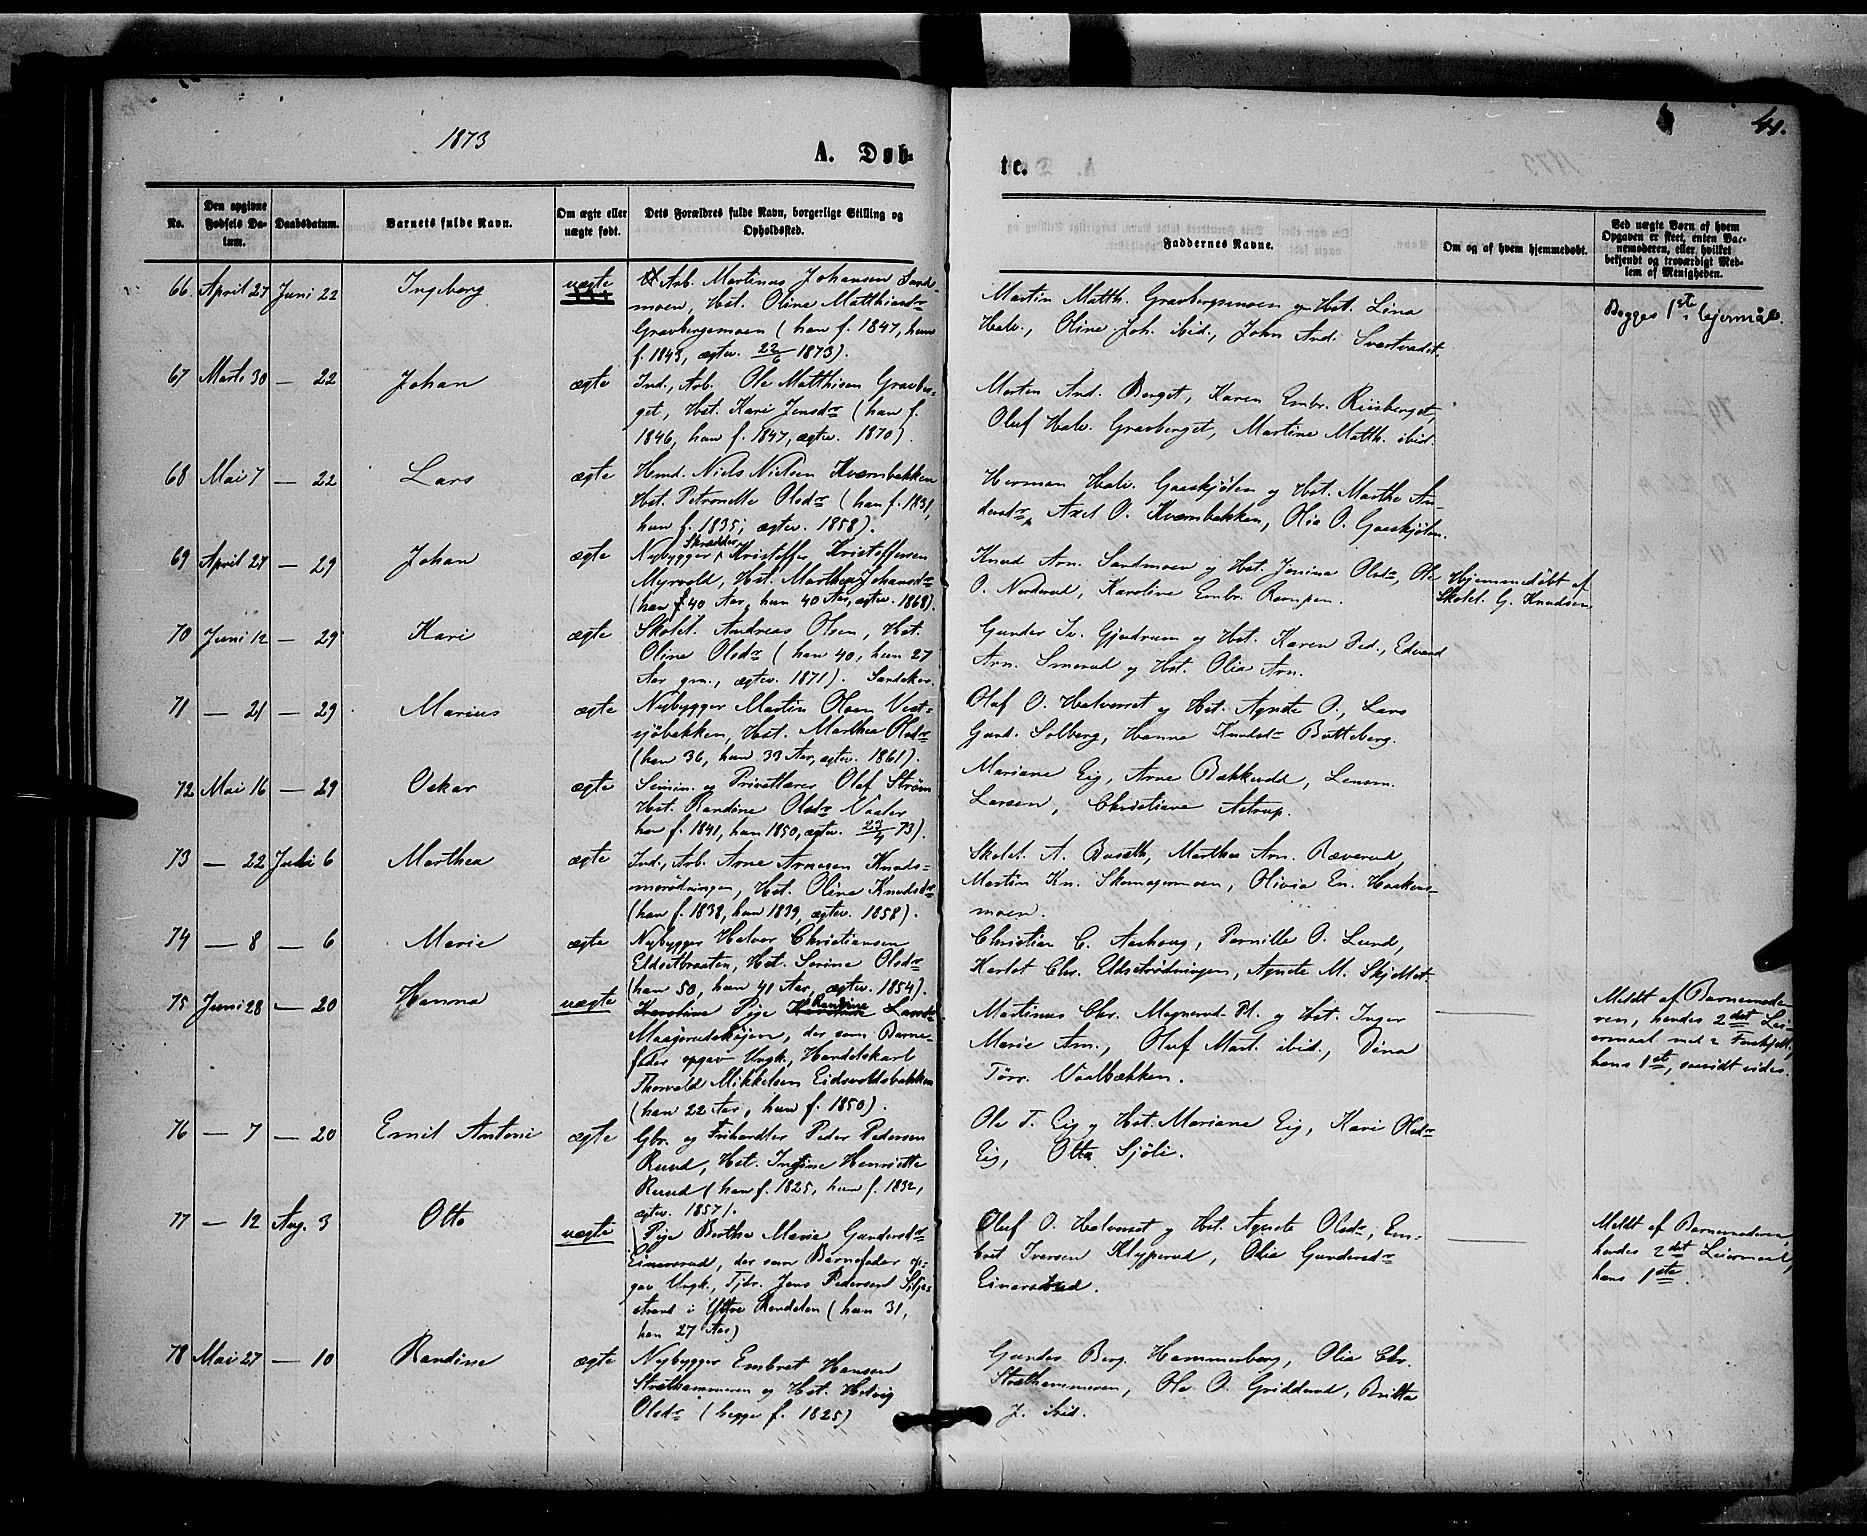 1873
A. Døb-
te.
41.
No.
Den opgivne Fødsels Datum.
Daabsdatum.
Barnets fulde Navn.
Om ægte eller uægte født.
Dets Forældres fulde Navn, borgerlige Stilling og Opholdssted.
Faddernes Navne.
Om og af hvem hjemmedøbt.
Ved uægte Børn af hvem Opgaven er skeet, enten Barnemoderen, eller hvilket bekjendt og troværdigt Medlem af Menigheden.
66. April 27 Juni 22 Ingeborg uægte
Arb. Martinus Johansen Sand-
moen, Hst. Oline Matthiasdr
Gravbergsmoen (han f. 1847, hun
f. 1848, ægtev. 22/6 1873).
Martin Matth. Gravbergsmoen og Hst. Lina
Halv., Oline Joh. ibid., John And. Svartvadet.
Begges 1ste Lejermål.
67 Marts 30 — 22 Johan ægte
Ind., Arb. Ole Matthisen Gravber-
get, Hst. Kari Jensdr (han f.
1846, hun f. 1847, ægtev. 1870).
Morten And. Berget, Karen Embr. Risberget,
Oluf Halv. Gravberget, Martine Matth. ibid.
68 Mai 7 — 22 Lars ægte
Hmd. Niels Nielsen Kværnbakken
Hst. Petronelle Olsdr (han f. 1831,
hun f. 1835, ægtev. 1858).
Herman Halv. Gaaskjølen og Hst. Marthe An-
dersdr, Axel O. Kværnbakken, Olia O. Gaaskjølen.
69 April 27 — 29 Johan ægte
Nybygger, Skrædder Kristoffer Kristoffersen
Myrvold, Hst. Marthea Johansdr
(han 40 Aar, hun 40 Aar, ægtev. 1868).
Knud Arn. Sandmoen og Hst. Jonina Olsdr, Ole
O. Norderud, Karoline Embr. Rampen.
Hjemmedøbt af
Skolel. G. Knudsen
70 Juni 12 — 29 Kari ægte
Skolel. Andreas Olsen, Hst.
Oline Olsdr (han 40, hun 27
Aar gm., ægtev. 1871). Sandaker.
Gunder Iv. Gjødrum og Hst. Karen Ped., Edvard
Arn. Snerud og Hst. Olia Arn.
71 — 21 — 29 Marius ægte
Nybygger Martin Olsen Vest-
sjøbakken, Hst. Marthea Olsdr
(han 36, hun 33 Aar, ægtev. 1861).
Olaf O. Halvorset og Hst. Agnete O., Lars
Gund. Solberg, Hanna Knudsdr Butteberg.
72 Mai 16 — 29 Oskar ægte
Semin. og Privatlærer Olaf Strøm
Hst. Randine Olsdr Vaaler
han f. 1841, hun 1850, ægtev. 23/4 73).
Mariane Eig, Arne Bækkvold, Lensm.
Larsen, Christiane Astrup.
73 — 22 Juli 6 Marthea ægte
Ind., Arb. Arne Arnesen Knuds-
morødningen, Hst. Oline Knudsdr
(han f. 1838, hun 1839, ægtev. 1858).
Skolel. A. Baseth, Marthea Arn. Ræverud,
Martin Kn. Skomagermoen, Olivia En. Haakens-
moen.
74 — 8 — 6 Marie ægte
Nybygger Halvor Christiansen
Eldsetbraaten, Hst. Serine Olsdr
(han 50, hun 41 Aar, ægtev. 1854).
Christian C. Aashaug, Pernille O. Lund,
Karlot Chr. Eldsetrødningen, Agnete M. Skjellet.
75 Juni 28 — 20 Hanna uægte
Pige Randine Larsdr
Maagerudskøjen, der som Barne-
fader opgav Ungk., Handelskarl
Thorvald Mikkelsen Eidsvoldsbakken
(han 22 Aar, hun f. 1850).
Martinus Chr. Magnerud Pl. og Hst. Inger
Marie Arn., Oluf Mart. ibid., Dina
Törr. Vaalbækken.
Meldt af Barnemode-
ren, hendes 2det Lei-
ermaal med 2 Forskjell.,
hans 1ste, saavidt vides.
76 — 7 — 20 Emil Antoni ægte
Gbr. og Frihandler Peder Pedersen
Ruud, Hst. Ingine Henriette
Ruud (han f. 1825, hun f. 1832,
ægtev. 1857).
Ole T. Eig og Hst. Mariane Eig, Kari Olsdr
Eig, Otto Sjöli.
77 — 12 Aug. 3 Otto uægte
Pige Berthe Marie Gundersdr
Einarsrud, der som Barnefader op-
gav Ungk., Tjdr. Jens Pedersen Siljes-
strand i Yttre Rendalen (hun 31,
han 27 Aar)
Oluf O. Halvorset og Hst. Agnete Olsdr, Em-
bret Iversen Klypperud, Olia Gundersdr
Einarsrud.
Meldt af Barnemoderen
hendes 2det Leiermaal,
hans 1ste.
78 Mai 27 — 10 Randine ægte
Nybygger Embret Hansen
Stræthammeren og Hst. Hedvig
Olsdr (begge f. 1825)
Gunder Berg. Hammerberg, Olia Chr.
Stræthammeren, Ole O. Gridderud, Britta
J. ibid.